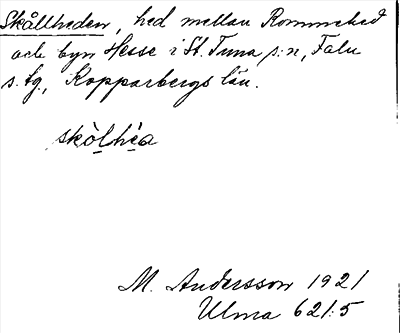 Skållheden, hed mellan Rommehed
och byn Hesse i St. Tuna s:n, Falu
s. tg., Kopparbergs län.
skòlhèa
M. Andersson 1921
Ulma 621:5